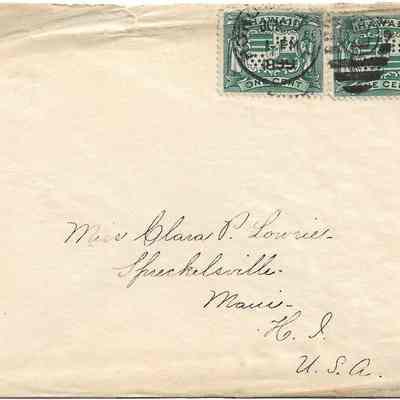 HAWAII HAWAII
1899
ONE CENT ONE CENT
Miss Clara P. Lowrie.
Spreckelsville.
Maui.
H. I.
U. S. A.